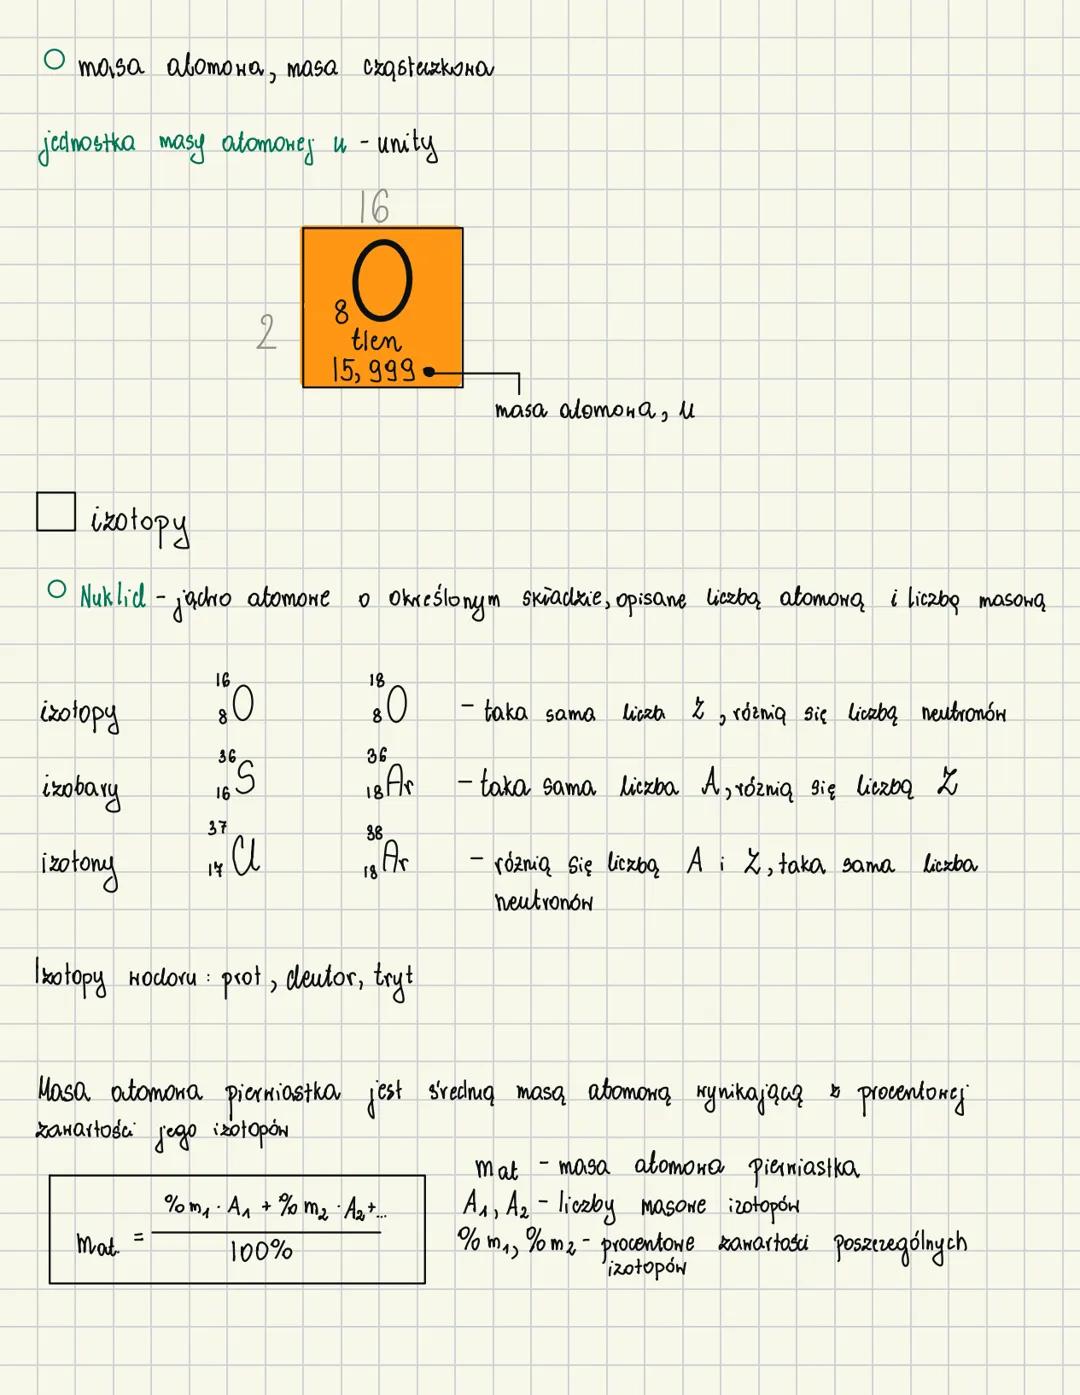 masa atomowa, masa cząsteczkowa
jednostka masy atomowej u - unity
16
O
8
2
tlen
15,999
masa atomowa, u
izotopy
Nuklid - jądro atomowe o określonym składzie, opisane liczbą atomową i liczbą masową
izotopy ¹⁶₈O ¹⁸₈O - taka sama liczba Z, różnią się liczbą neutronów
izobary ³⁶₁₆S ³⁶₁₈Ar - taka sama liczba A, różnią się liczbą Z
izotony ³⁷₁₇Cl ³⁸₁₈Ar - różnią się liczbą A i Z, taka sama liczba
neutronów
Izotopy wodoru: prot, deutor, tryt
Masa atomowa pierwiastka jest średnią masą atomową wynikającą z procentowej
zawartości jego izotopów
%m₁ · A₁ + %m₂ · A₂+...
mat. =
100%
mat - masa atomowa pierwiastka
A₁, A₂ - liczby masowe izotopów
%m₁, %m₂ - procentowe zawartości poszczególnych
izotopów